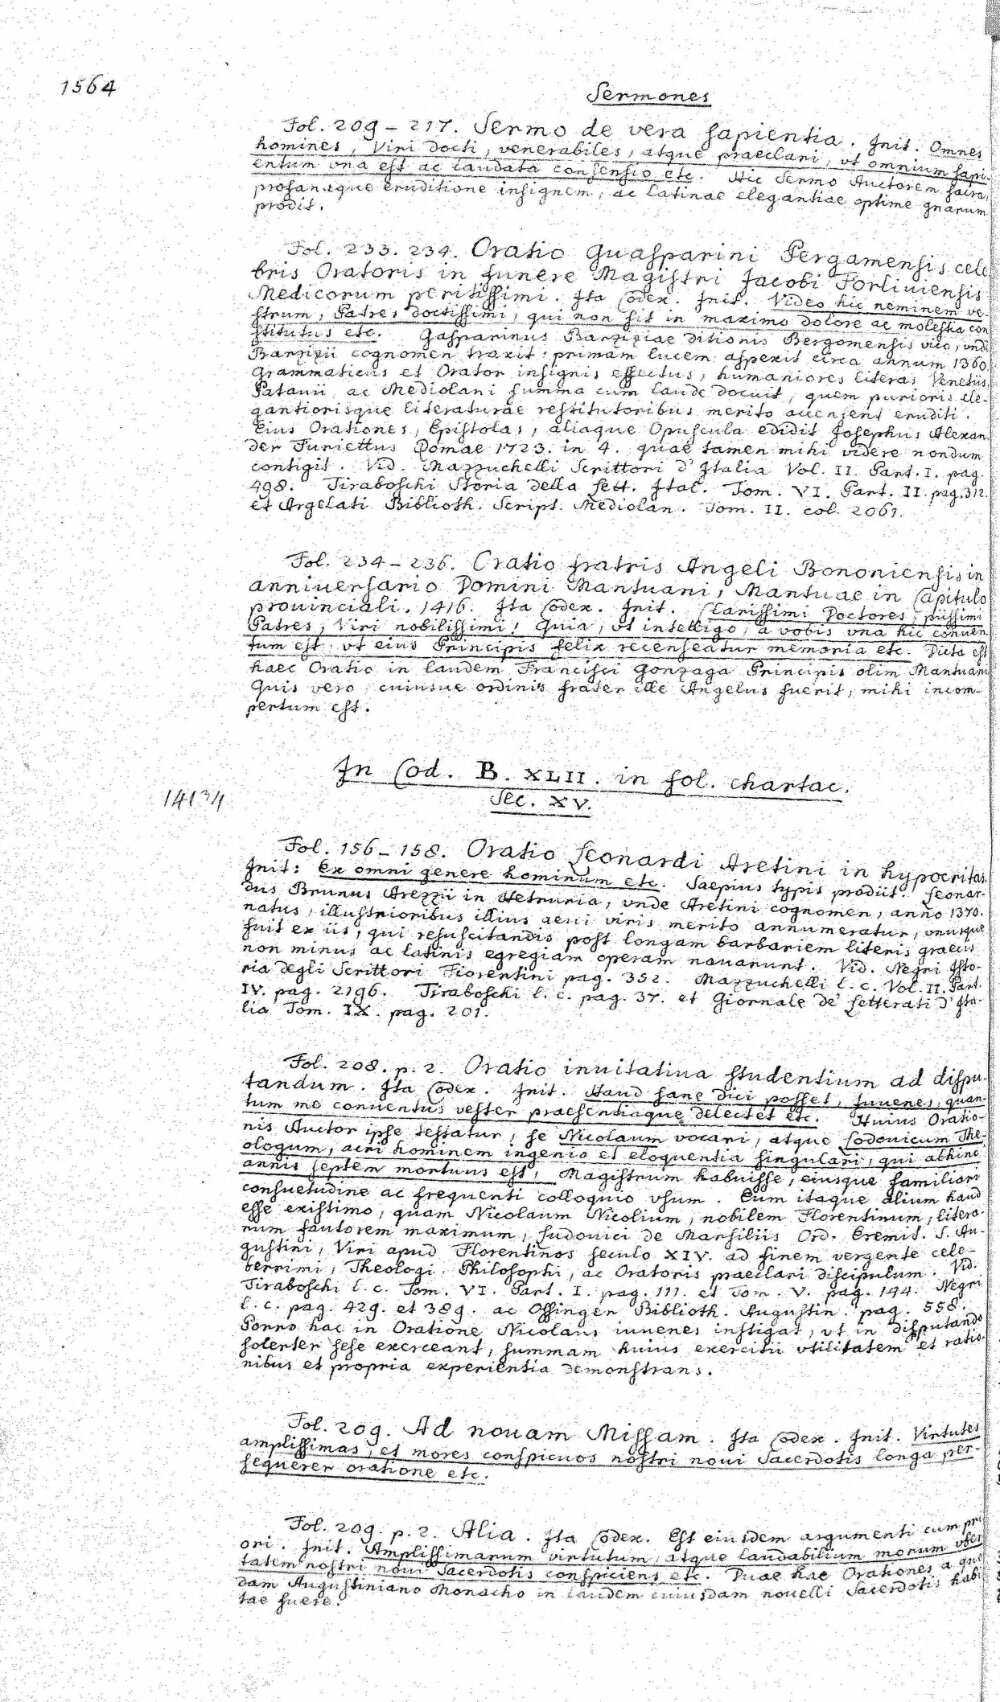 1564
Sermones
Fol. 209 – 217. Sermo de vera sapientia. Init. Omnes
homines, Viri docti, venerabiles, atque praeclari, vt omnium sapi-
entum vna est ac laudata consensio etc. Hic Sermo Auctorem sacra,
profanaque eruditione insignem, ac latinae elegantiae optime gnarum
prodit.
Fol. 233. 234. Oratio Guasparini Pergamensis cele
bris Oratoris in funere Magistri Jacobi Forliuiensis
Medicorum peritissimi. Ita Codex. Init. Video hic neminem ve-
strum, Patres doctissimi, qui non sit in maximo dolore ac molestia con
stitutus etc. Gasparinus Barziziae ditionis Bergomensis vico, vnde
Barzizii cognomen traxit, primam lucem aspexit circa annum 1360.
Grammaticus et Orator insignis effectus, humaniores literas Venetiis,
Patauii, ac Mediolani summa cum laude docuit, quem purioris ele-
gantiorisque literaturae restitutoribus merito accensent eruditi.
Eius Orationes, Epistolas, aliaque Opuscula edidit Josephus Alexan
der Furiettus Romae 1723. in 4. quae tamen mihi videre nondum
contigit. Vid. Mazzuchelli Scrittori d'Italia Vol. II. Part. I. pag.
498. Tiraboschi Storia della Lett. Ital. Tom. VI. Part. II. pag. 312.
et Argelati Biblioth. Script. Mediolan. Tom. II. col. 2061.
Fol. 234 – 236. Oratio fratris Angeli Bononiensis in
anniuersario Domini Mantuani, Mantuae in Capitulo
prouinciali. 1416. Ita Codex. Init. Clarissimi Doctores, piissimi
Patres, Viri nobilissimi! Quia, vt intelligo, a vobis vna hic conuen
tum est, vt eius Principis felix recenseatur memoria etc. Dicta est
haec Oratio in laudem Francisci Gonzaga Principis olim Mantuani
Quis vero, cuiusue ordinis frater ille Angelus fuerit, mihi incom-
pertum est.
In Cod. B. XLII. in fol. chartac.
Sec. XV.
14134
Fol. 156 – 158. Oratio Leonardi Aretini in hypocritas.
Init: Ex omni genere hominum etc. Saepius typis prodiit. Leonar-
dus Brunus Arezzii in Hetruria, vnde Aretini cognomen, anno 1370.
natus, illustrioribus illius aeui viris merito annumeratur, vnusque
fuit ex iis, qui resuscitandis post longam barbariem literis graecis
non minus ac latinis egregiam operam nauarunt. Vid. Negri Isto-
ria degli Scrittori Fiorentini pag. 352. Mazzuchelli l. c. Vol. II. Part.
IV. pag. 2196. Tiraboschi l. c. pag. 37. et Giornale de' Letterati d'Ita-
lia Tom. IX. pag. 201.
Fol. 208. p. 2. Oratio inuitatiua studentium ad dispu-
tandum. Ita Codex. Init. Haud sane dici posset, Juuenes, quan-
tum me conuentus vester praesentiaque delectet etc. Huius Oratio-
nis Auctor ipse testatur, se Nicolaum vocari, atque Lodouicum The-
ologum, acri hominem ingenio et eloquentia singulari, qui abhinc
annis septem mortuus est, Magistrum habuisse, eiusque familiari
consuetudine ac frequenti colloquio vsum. Eum itaque alium haud
esse existimo, quam Nicolaum Nicolium, nobilem Florentinum, litera-
rum fautorem maximum, Ludouici de Marsiliis Ord. Eremit. S. Au-
gustini, Viri apud Florentinos seculo XIV. ad finem vergente cele-
berrimi, Theologi, Philosophi, ac Oratoris praeclari discipulum. Vid.
Tiraboschi l. c. Tom. VI. Part. I. pag. 111. et Tom. V. pag. 144. Negri
l. c. pag. 429. et 389. ac Ossinger Biblioth. Augustin. pag. 558.
Porro hac in Oratione Nicolaus iuuenes instigat, vt in disputando
solerter sese exerceant, summam huius exercitii vtilitatem et ratio-
nibus et propria experientia demonstrans.
Fol. 209. Ad nouam Missam. Ita Codex. Init. Virtutes
amplissimas, et mores conspicuos nostri noui Sacerdotis longa per-
sequerer oratione etc.
Fol. 209. p. 2. Alia. Ita Codex. Est eiusdem argumenti cum pri
ori. Init. Amplissimarum virtutum, atque laudabilium morum vber
tatem nostri noui Sacerdotis conspiciens etc. Duae hae Orationes a quo
dam Augustiniano Monacho in laudem cuiusdam nouelli Sacerdotis habi
tae fuere.